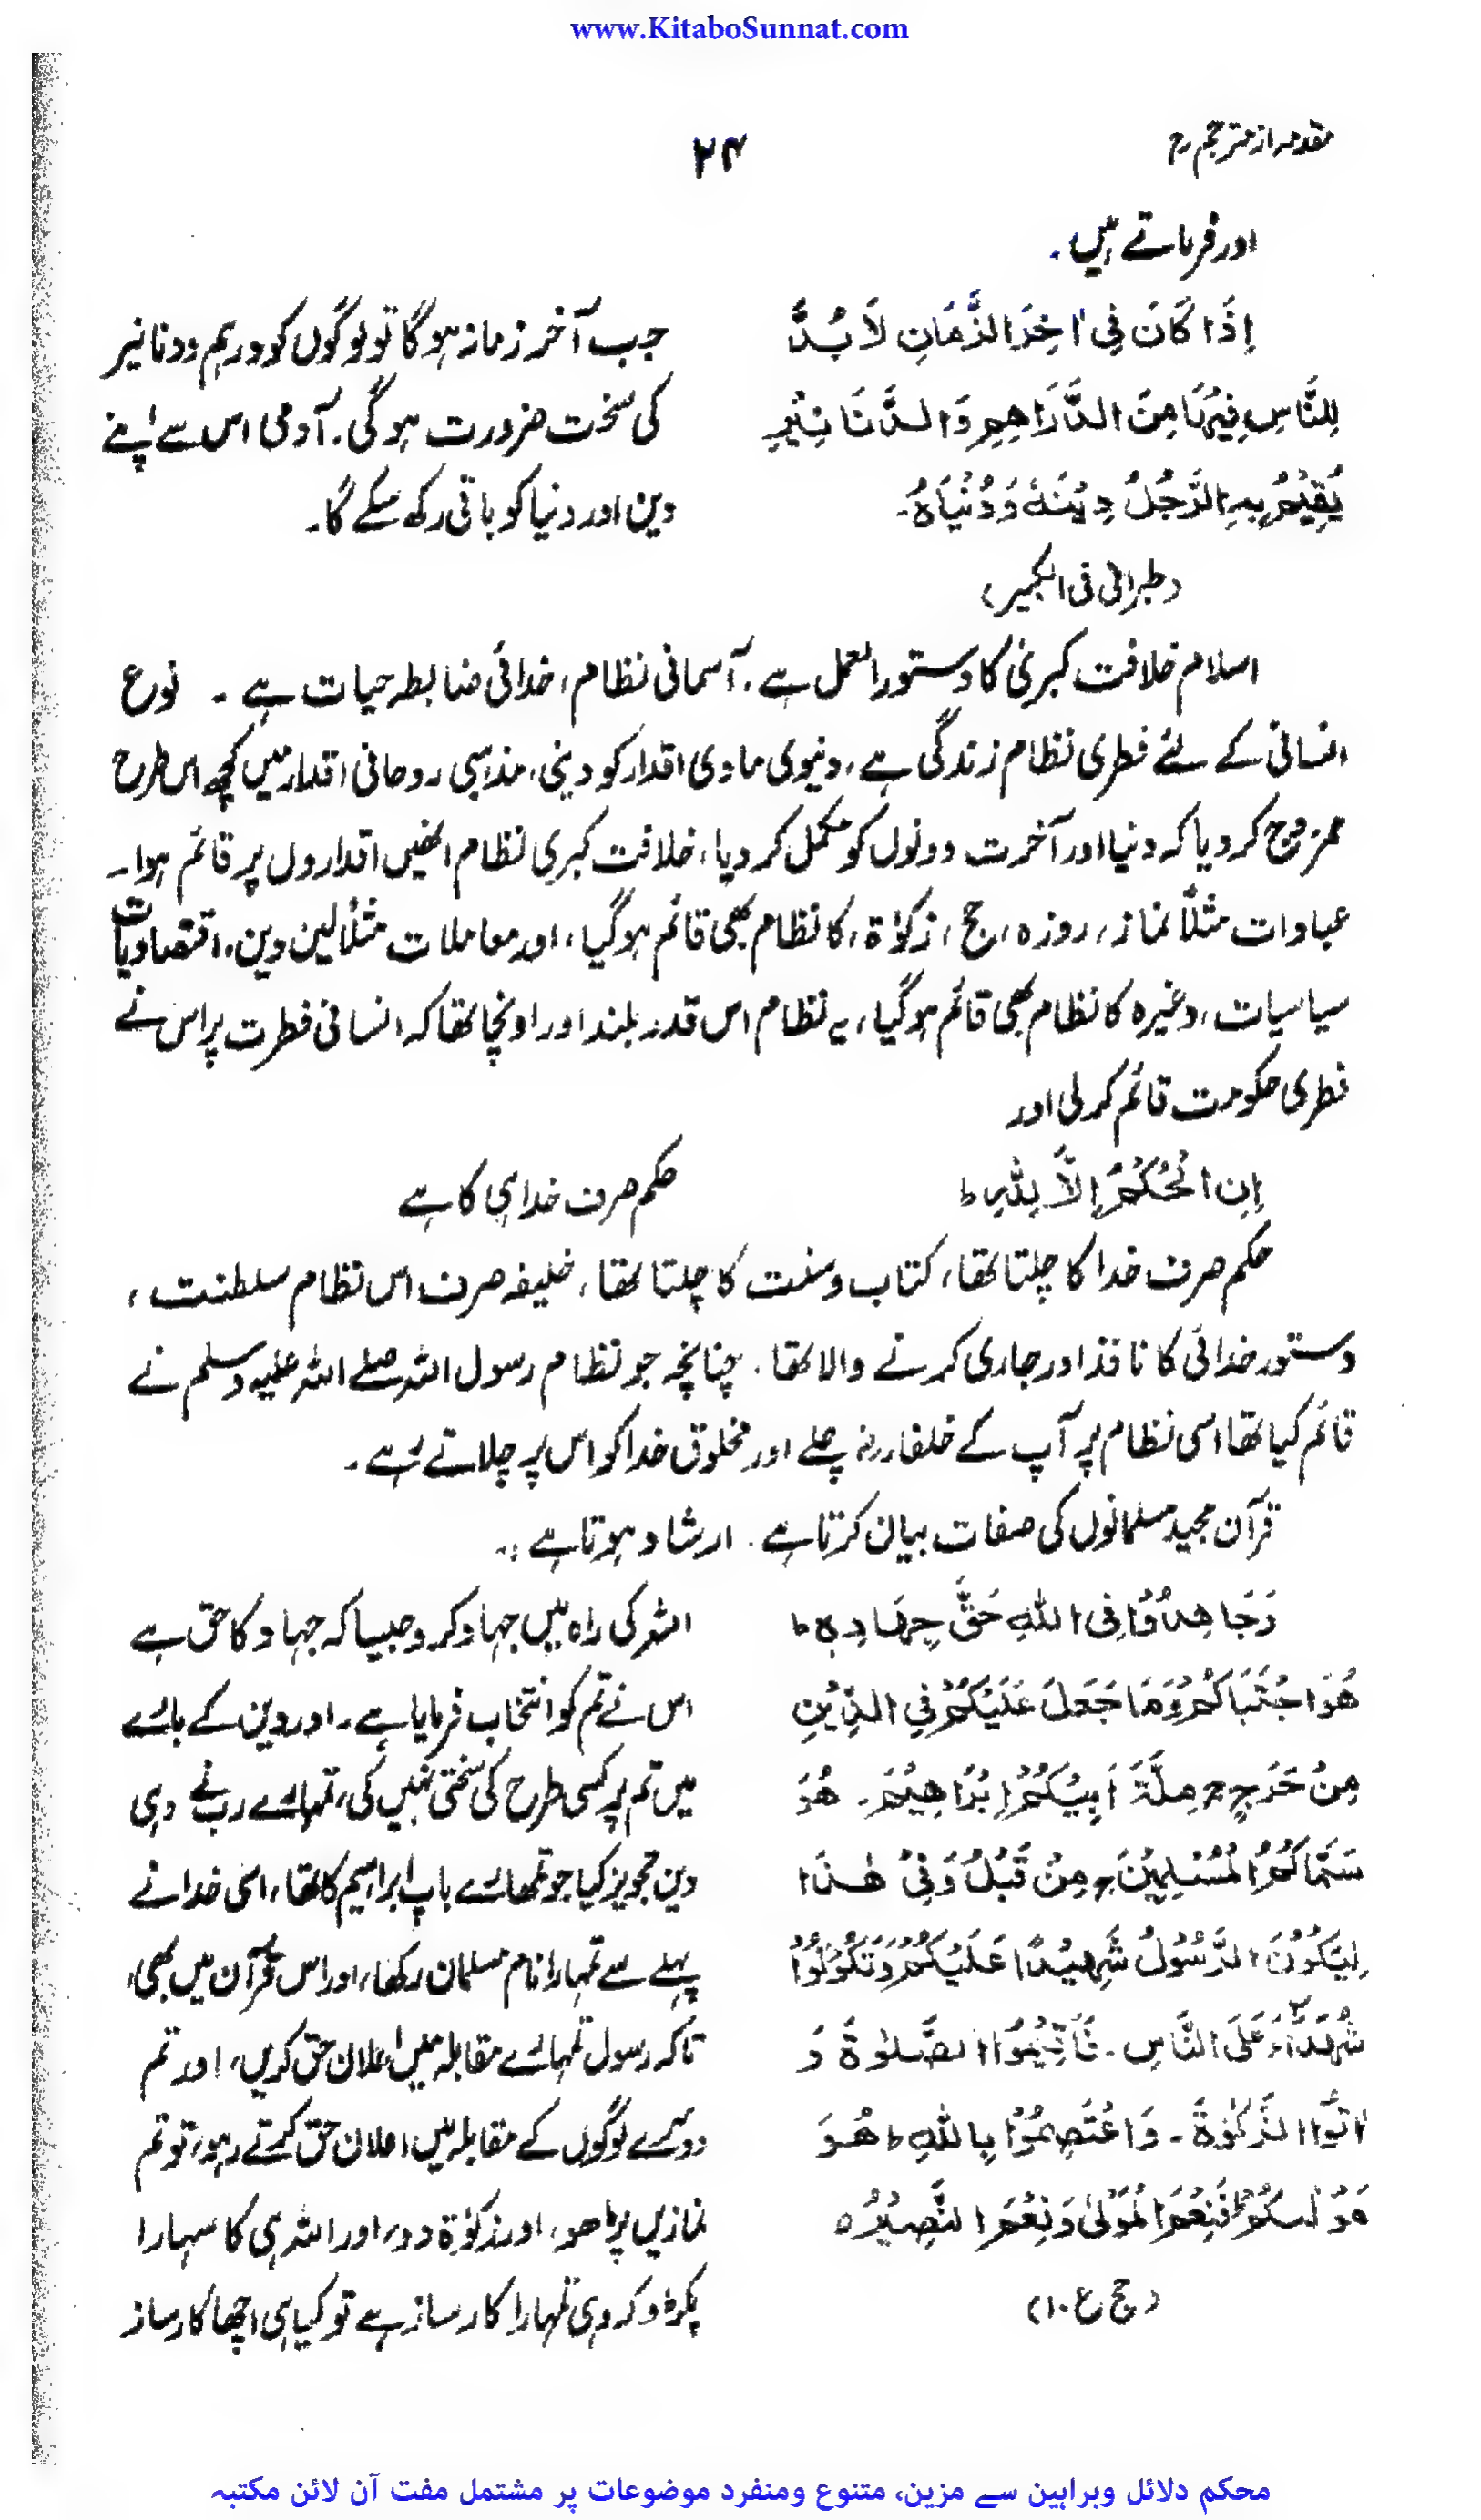 www.KitaboSunnat.com
مقدمہ از مترجم رح
۲۴
اور فرماتے ہیں.
إِذَا كَانَ فِي اٰخِرِ الزَّمَانِ لَا بُدَّ
لِلنَّاسِ فِيْهَا مِنَ الدَّرَاهِمِ وَالدَّنَانِيْرِ
يُقِيْمُ بِهِ الرَّجُلُ دِيْنَهٗ وَدُنْيَاهُ۔
(طبرانی فی الکبیر)
جب آخر زمانہ ہوگا تو لوگوں کو درہم ودنانیر
کی سخت ضرورت ہوگی. آدمی اس سے اپنے
دین اور دنیا کو باقی رکھ سکے گا۔
اسلام خلافت کبریٰ کا دستور العمل ہے. آسمانی نظام، خدائی ضابطہ حیات ہے ۔ نوع
انسانی کے لئے فطری نظام زندگی ہے، دنیوی مادی اقدار کو دینی، مذہبی روحانی اقدار میں کچھ اس طرح
ممزوج کر دیا کہ دنیا اور آخرت دونوں کو مکمل کر دیا، خلافت کبری نظام انھیں اقداروں پر قائم ہوا۔
عبادات مثلاً نماز، روزہ، حج، زکوٰۃ، کا نظام بھی قائم ہوگیا، اور معاملات مثلاً لین دین، اقتصادیات
سیاسیات، وغیرہ کا نظام بھی قائم ہوگیا، یہ نظام اس قدر بلند اور اونچا تھا کہ انسانی فطرت پر اس نے
فطری حکومت قائم کرلی اور
اِنِ الْحُكْمُ اِلَّا لِلّٰهِ ط
حکم صرف خدا ہی کا ہے
حکم صرف خدا کا چلتا تھا، کتاب وسنت کا چلتا تھا، خلیفہ صرف اس نظام سلطنت،
دستور خدائی کا نافذ اور جاری کرنے والا تھا. چنانچہ جو نظام رسول اللہ صلے اللہ علیہ وسلم نے
قائم کیا تھا اسی نظام پر آپ کے خلفاء رض چلے اور مخلوق خدا کو اس پر چلاتے رہے۔
قرآن مجید مسلمانوں کی صفات بیان کرتا ہے. ارشاد ہوتا ہے :۔
وَجَاهِدُوْا فِي اللّٰهِ حَقَّ جِهَادِهٖ ط
هُوَ اجْتَبَاكُمْ وَمَا جَعَلَ عَلَيْكُمْ فِي الدِّيْنِ
مِنْ حَرَجٍ ج مِلَّةَ اَبِيْكُمْ اِبْرَاهِيْمَ۔ هُوَ
سَمَّاكُمُ الْمُسْلِمِيْنَ مِنْ قَبْلُ وَفِيْ هٰذَا
لِيَكُوْنَ الرَّسُوْلُ شَهِيْدًا عَلَيْكُمْ وَتَكُوْنُوْا
شُهَدَآءَ عَلَى النَّاسِ۔ فَاَقِيْمُوا الصَّلٰوةَ وَ
اٰتُوا الزَّكٰوةَ۔ وَاعْتَصِمُوْا بِاللّٰهِ ط هُوَ
مَوْلٰىكُمْ فَنِعْمَ الْمَوْلٰى وَنِعْمَ النَّصِيْرُ ہ
(حج ع۱۰)
اللہ کی راہ میں جہاد کرو جیسا کہ جہاد کا حق ہے
اس نے تم کو انتخاب فرمایا ہے۔ اور دین کے بارے
میں تم پر کسی طرح کی سختی نہیں کی، تمہارے رب نے وہی
دین تجویز کیا جو تمھارے باپ ابراہیم کا تھا، اسی خدا نے
پہلے سے تمہارا نام مسلمان رکھا، اور اس قرآن میں بھی،
تاکہ رسول تمہارے مقابلہ میں اعلان حق کریں، اور تم
دوسرے لوگوں کے مقابلہ میں اعلان حق کرتے رہو، تو تم
نمازیں پڑھو، اور زکوٰۃ دو، اور اللہ ہی کا سہارا
پکڑو کہ وہی تمہارا کارساز ہے تو کیا ہی اچھا کارساز
محکم دلائل وبراہین سے مزین، متنوع ومنفرد موضوعات پر مشتمل مفت آن لائن مکتبہ